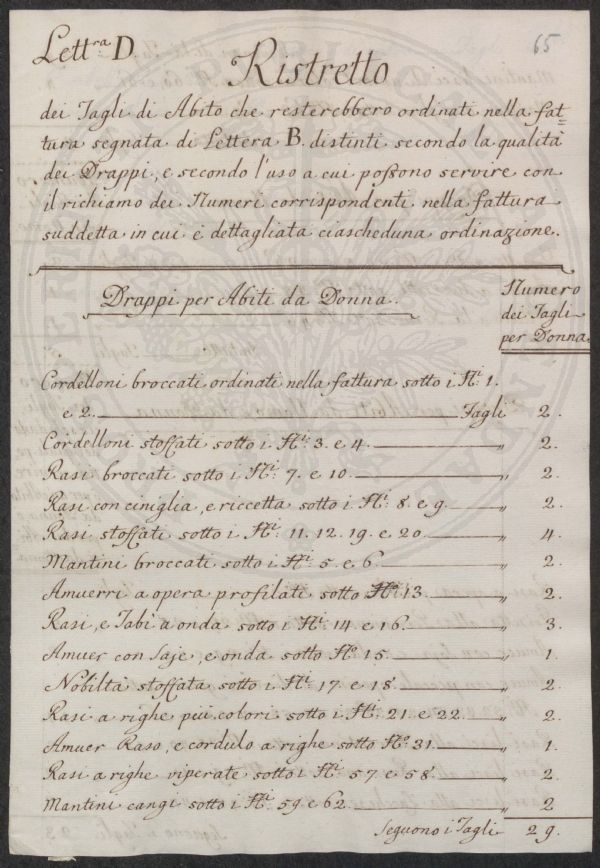 Lett.ra D.
65
Ristretto
dei Tagli di Abito che resterebbero ordinati nella fat=
tura segnata di Lettera B. distinti secondo la qualità
dei Drappi, e secondo l'uso a cui possono servire con
il richiamo dei Numeri corrispondenti nella fattura
suddetta in cui è dettagliata ciascheduna ordinazione.
Drappi per Abiti da Donna.
Numero
dei Tagli
per Donna.
Cordelloni broccati ordinati nella fattura sotto i N.i 1.
e 2. Tagli 2.
Cordelloni stoffati sotto i N.i 3. e 4. " 2.
Rasi broccati sotto i N.i 7. e 10. " 2.
Rasi con ciniglia, e riccetta sotto i N.i 8. e 9. " 2.
Rasi stoffati sotto i N.i 11. 12. 19. e 20. " 4.
Mantini broccati sotto i N.i 5. e 6. " 2.
Amuerri a opera profilati sotto N.o 13. " 2.
Rasi, e Tabì a onda sotto i N.i 14. e 16. " 3.
Amuer con Saje, e onda sotto N.o 15. " 1.
Nobiltà stoffata sotto i N.i 17 e 18. " 2.
Rasi a righe più colori sotto i N.i 21. e 22. " 2.
Amuer Raso, e cordulo a righe sotto N.o 31. " 1.
Rasi a righe viperate sotto i N.i 57 e 58. " 2.
Mantini cangi sotto i N.i 59 e 62. " 2
Seguono i Tagli 29.